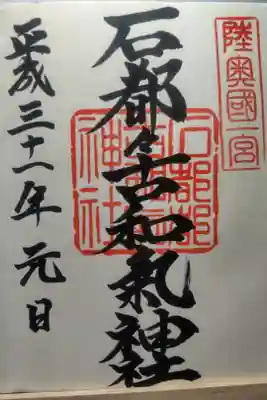 陸奥國一宮
石都々古和氣神社
石都都
神社
平成三十一年元日